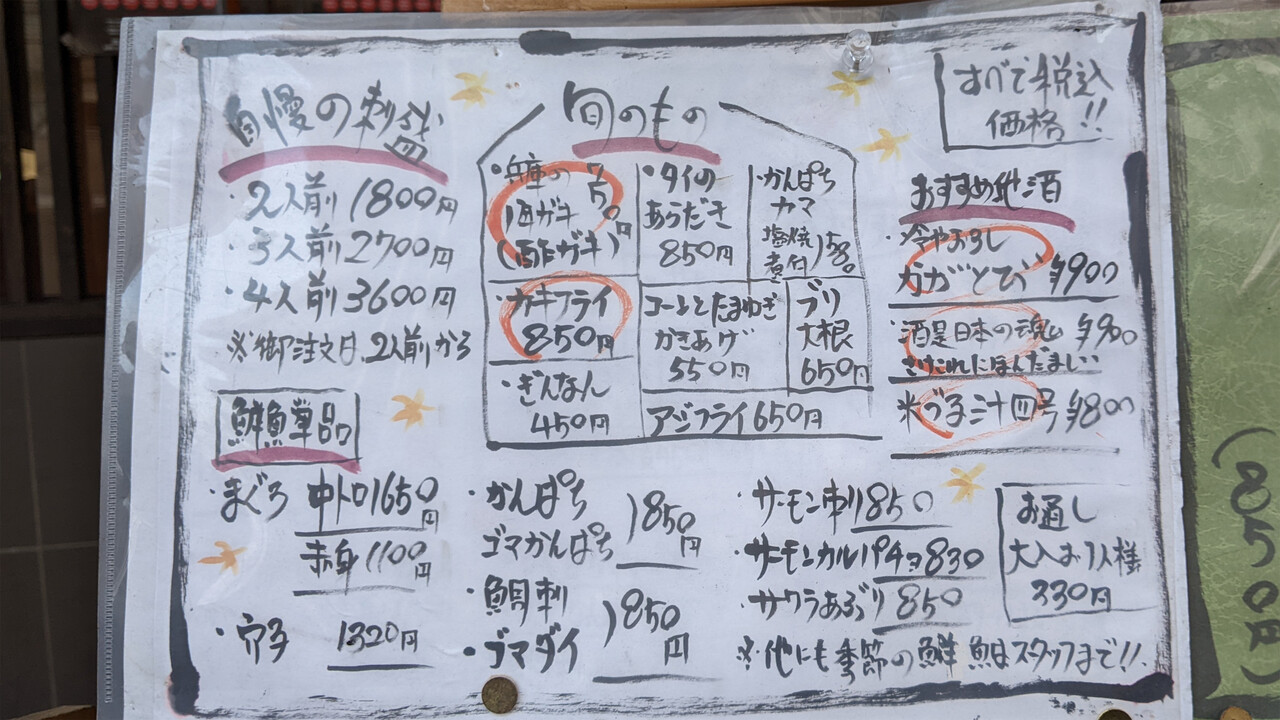 自慢の刺盛
・2人前 1800円
・3人前 2700円
・4人前 3600円
※御注文は、2人前から
旬のもの
・兵庫の
酒ガキ
750円
(酢ガキ)
・カキフライ
850円
・ぎんなん
450円
・タイの
あらだき
850円
・かんぱち
カマ
塩焼
煮付
)580
コーンとたまねぎ
かきあげ
550円
ブリ
大根
650円
アジフライ 650円
すべて税込
価格!!
おすすめ地酒
・冷やおろし
かがとび 900
・酒是日本の魂 900
さけこれにほんだましい
米づる三十四号 800
鮮魚単品
・まぐろ 中トロ 1650円
赤身 1100円
・穴子 1320円
・かんぱち
ゴマかんぱち
)850円
・鯛刺
・ゴマダイ
)850円
・サーモン刺 850
・サーモンカルパチョ 830
・サワラあぶり 850
※他にも季節の鮮魚はスタッフまで!!
お通し
大人お1人様
330円
(850円)